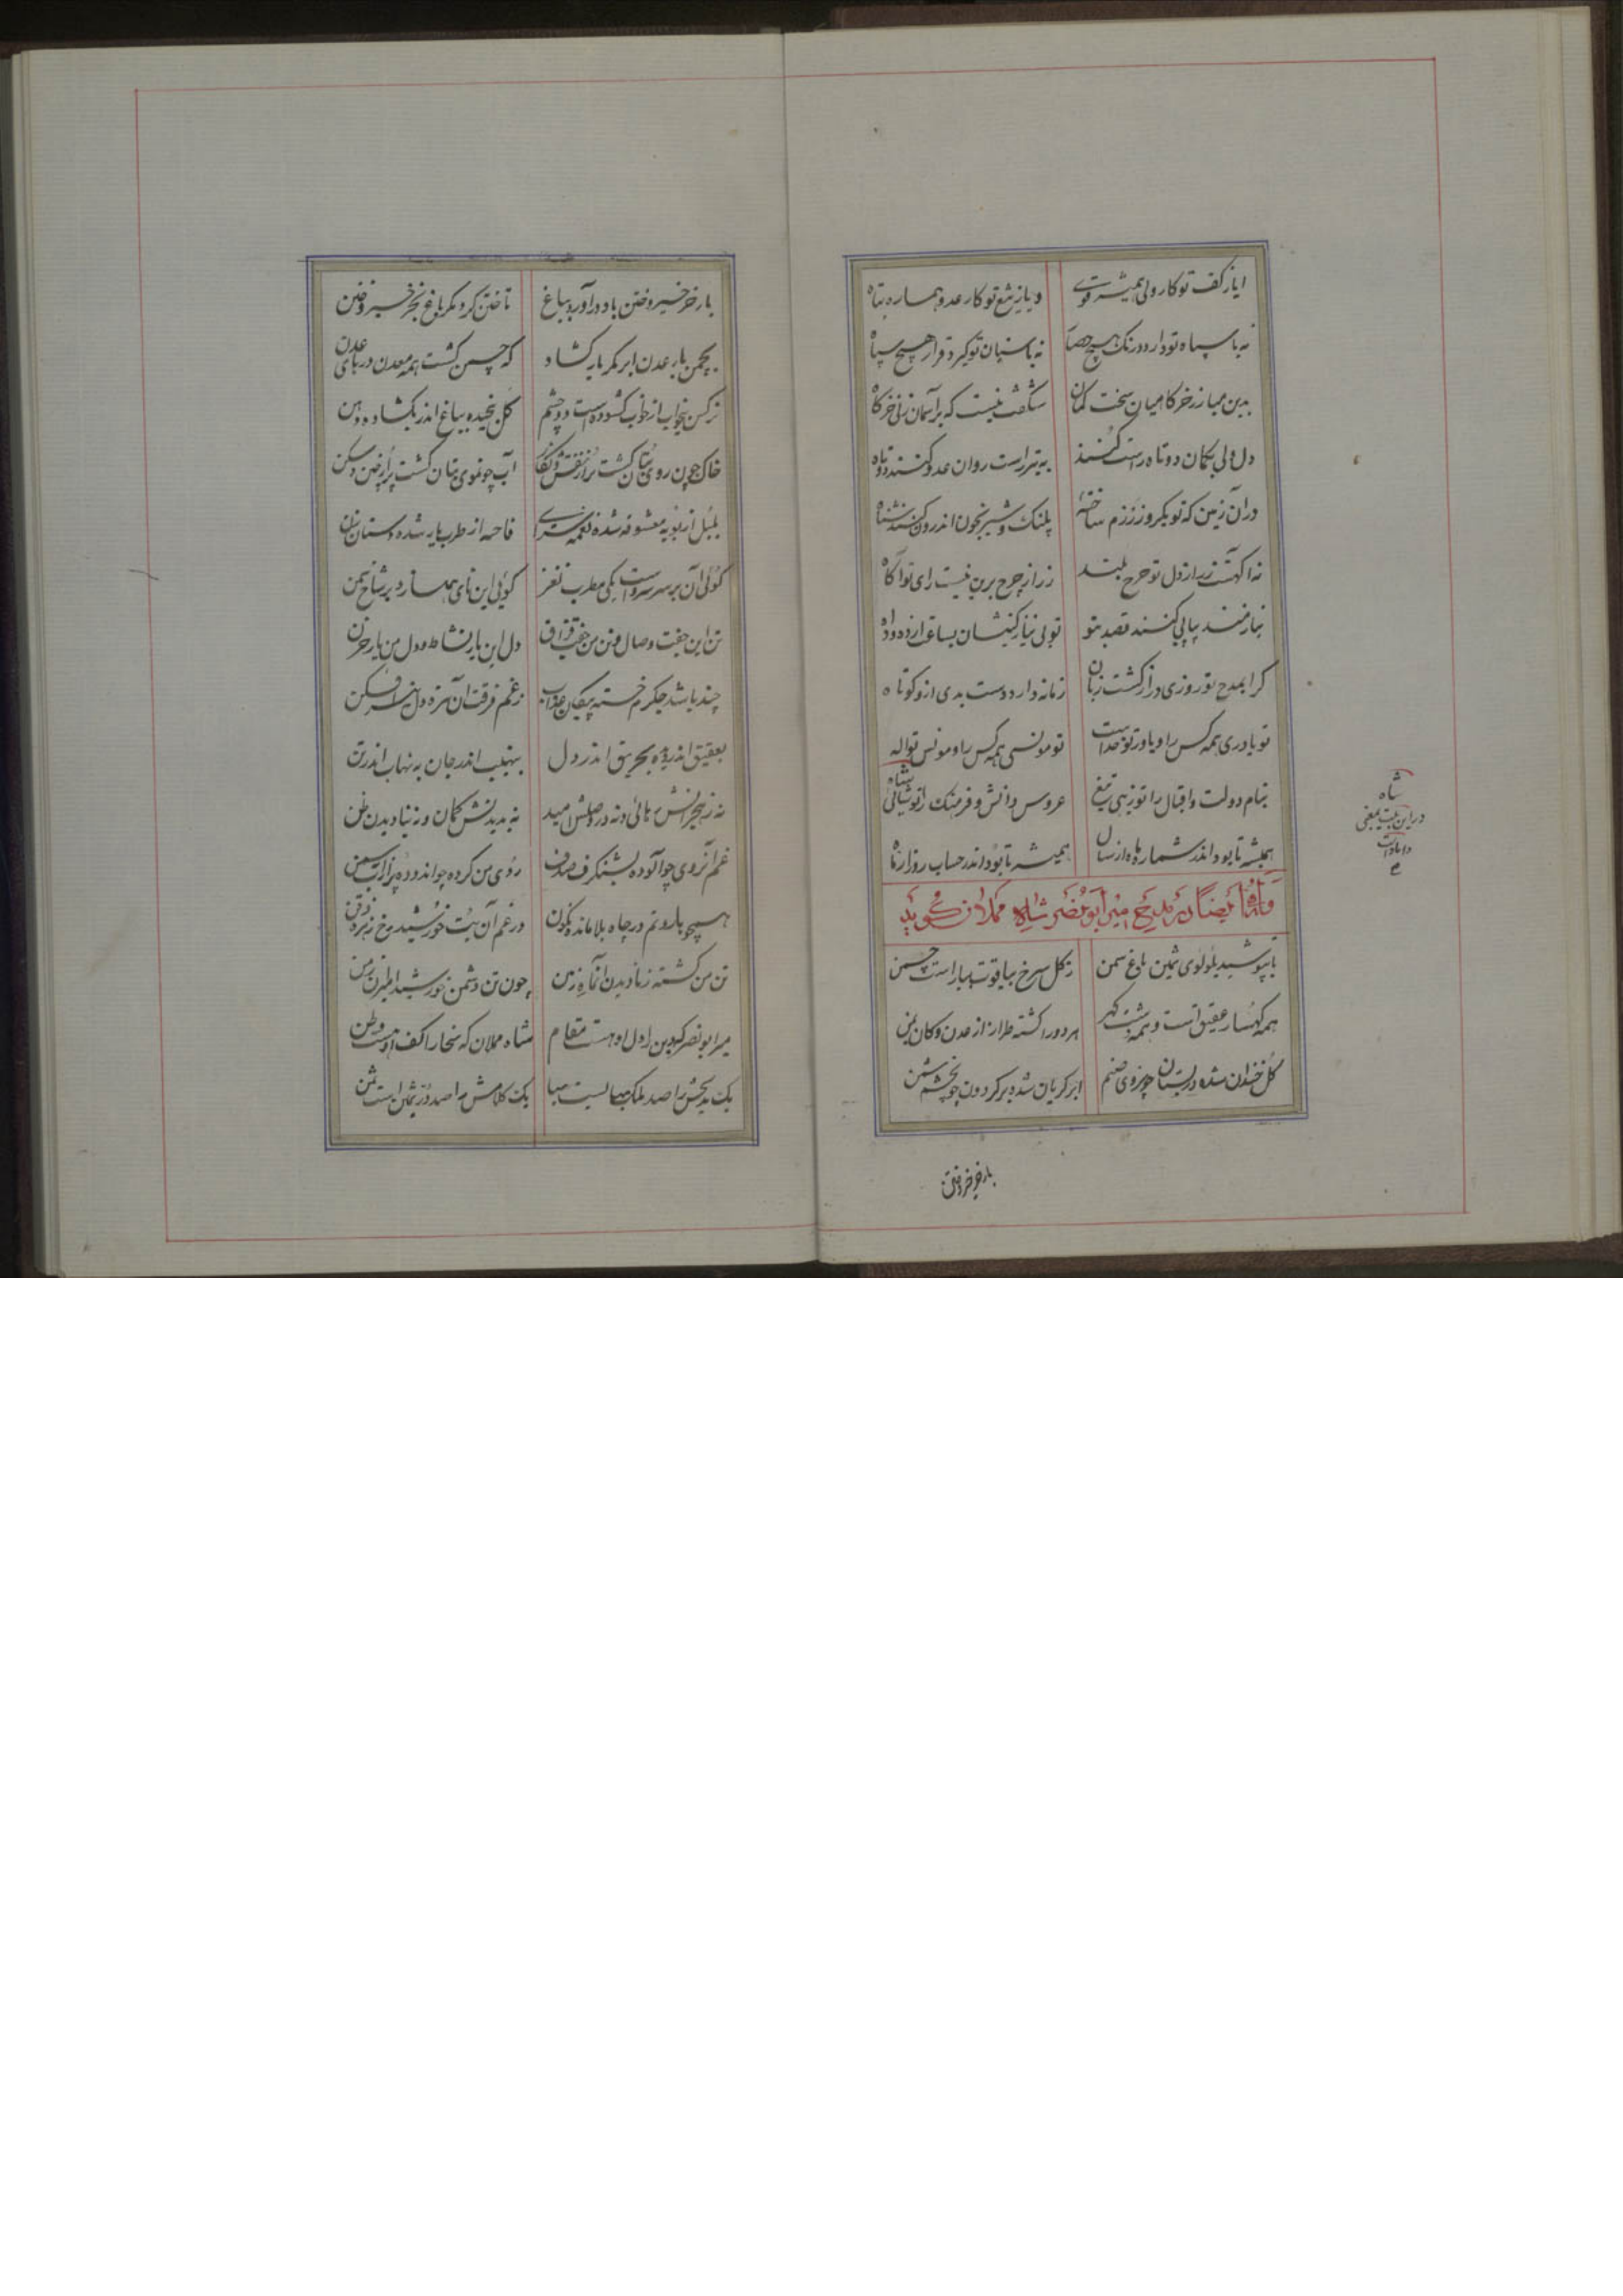 ایا ز کف تو کار ولی همیشه قوی
و یا ز تیغ تو کار عدو هماره تباه
نه با سپاه تو دارد درنگ هیچ حصار
نه با سنان تو گیرد قرار هیچ سپاه
بدین مبارز خرگاهیان سخت کمان
شگفت نیست که بر آسمان زنی خرگاه
دل ولی بکمان دوتاه راست کنند
به تیر راست روان عدو کنند دوتاه
در آن زمین که تو یکروز رزم ساخته
پلنک و شیر بخون اندرون کنند شناه
نه آگهست ز راز دل تو چرخ بلند
ز راز چرخ برین نیست رای تو آگاه
نیازمند بیابی کنند قصد بتو
تو بی نیاز کنیشان بساعتی از ده و داه
کرا بمدح تو روزی دراز گشت زبان
زمانه دارد دست بدی ازو کوتاه
تو یاوری همه کس را و یاور تو خداست
تو مونسی همه کس را و مونس تو اله
نیام دولت و اقبال را تو زیبی تیغ
عروس دانش و فرهنگ را تو شائی شاه
همیشه تا بود اندر شمار ماه از سال
همیشه تا بود اندر حساب روز از ماه
شاه
در این بیت بمعنی
داماد است
وله ایضاً در مدیح امیر ابونصر شاه مملان گوید
تا بپوشید بلولوی ثمین باغ سمن
ز گل سرخ بیاقوت بیاراست چمن
همه کهسار عقیق است و همه دشت گهر
هر دو را گشته طراز از عدن و کان یمن
گل خندان شده در بستان چو روی صنم
ابر گریان شده بر گردون چو چشم شمن
بار خرخیز و ختن
بار خرخیز و ختن باد درآورد بباغ
تاختن کرد مگر باغ بخرخیز و ختن
بچمن بار عدن ابر مگر باز گشاد
که چمن گشت همه معدن دریای عدن
نرگس نیم‌خواب از خواب گشوده است دو چشم
گل نخندیده بباغ اندر بگشاده دهن
خاک چون روی بتان گشت پر از نقش و نگار
آب چو موی بتان گشت پر از چین و شکن
بلبل از تو به معشوقه شده نغمه سرای
فاخته از طرب یار شده دستان زن
گوئی آن بر سر سرو است یکی مطرب نغز
گوئی این نای همی سازد بر شاخ چمن
تن این جفت وصال و تن من جفت فراق
دل این یار نشاط و دل من یار حزن
چند باشد جگرم خسته پیکان عذاب
ز غم فرقت آن
بعقیق اندر دیده بحریق اندر دل
بنهیب اندر جان به نهاب اندر تن
نه ز هجرانش رهائی و نه در وصلش امید
نه بدیدنش گمان و نه بنادیدن ظن
غم آنروی چو آلوده بشنگرف صدف
روی من کرده چو اندوده بزرآب سمن
همچو هاروتم در چاه بلا مانده نگون
در غم آن بت خورشید رخ زهره ذقن
تن من گشته ز نادیدن آن ماه زمن
چون تن دشمن خورشید امیران زمن
میر ابونصر که دین را دل او هست مقام
شاه مملان که سخا را کف او هست وطن
یک بدیحش را صد ملک بها نیست بها
یک کلامش را صد در ثمین است ثمن